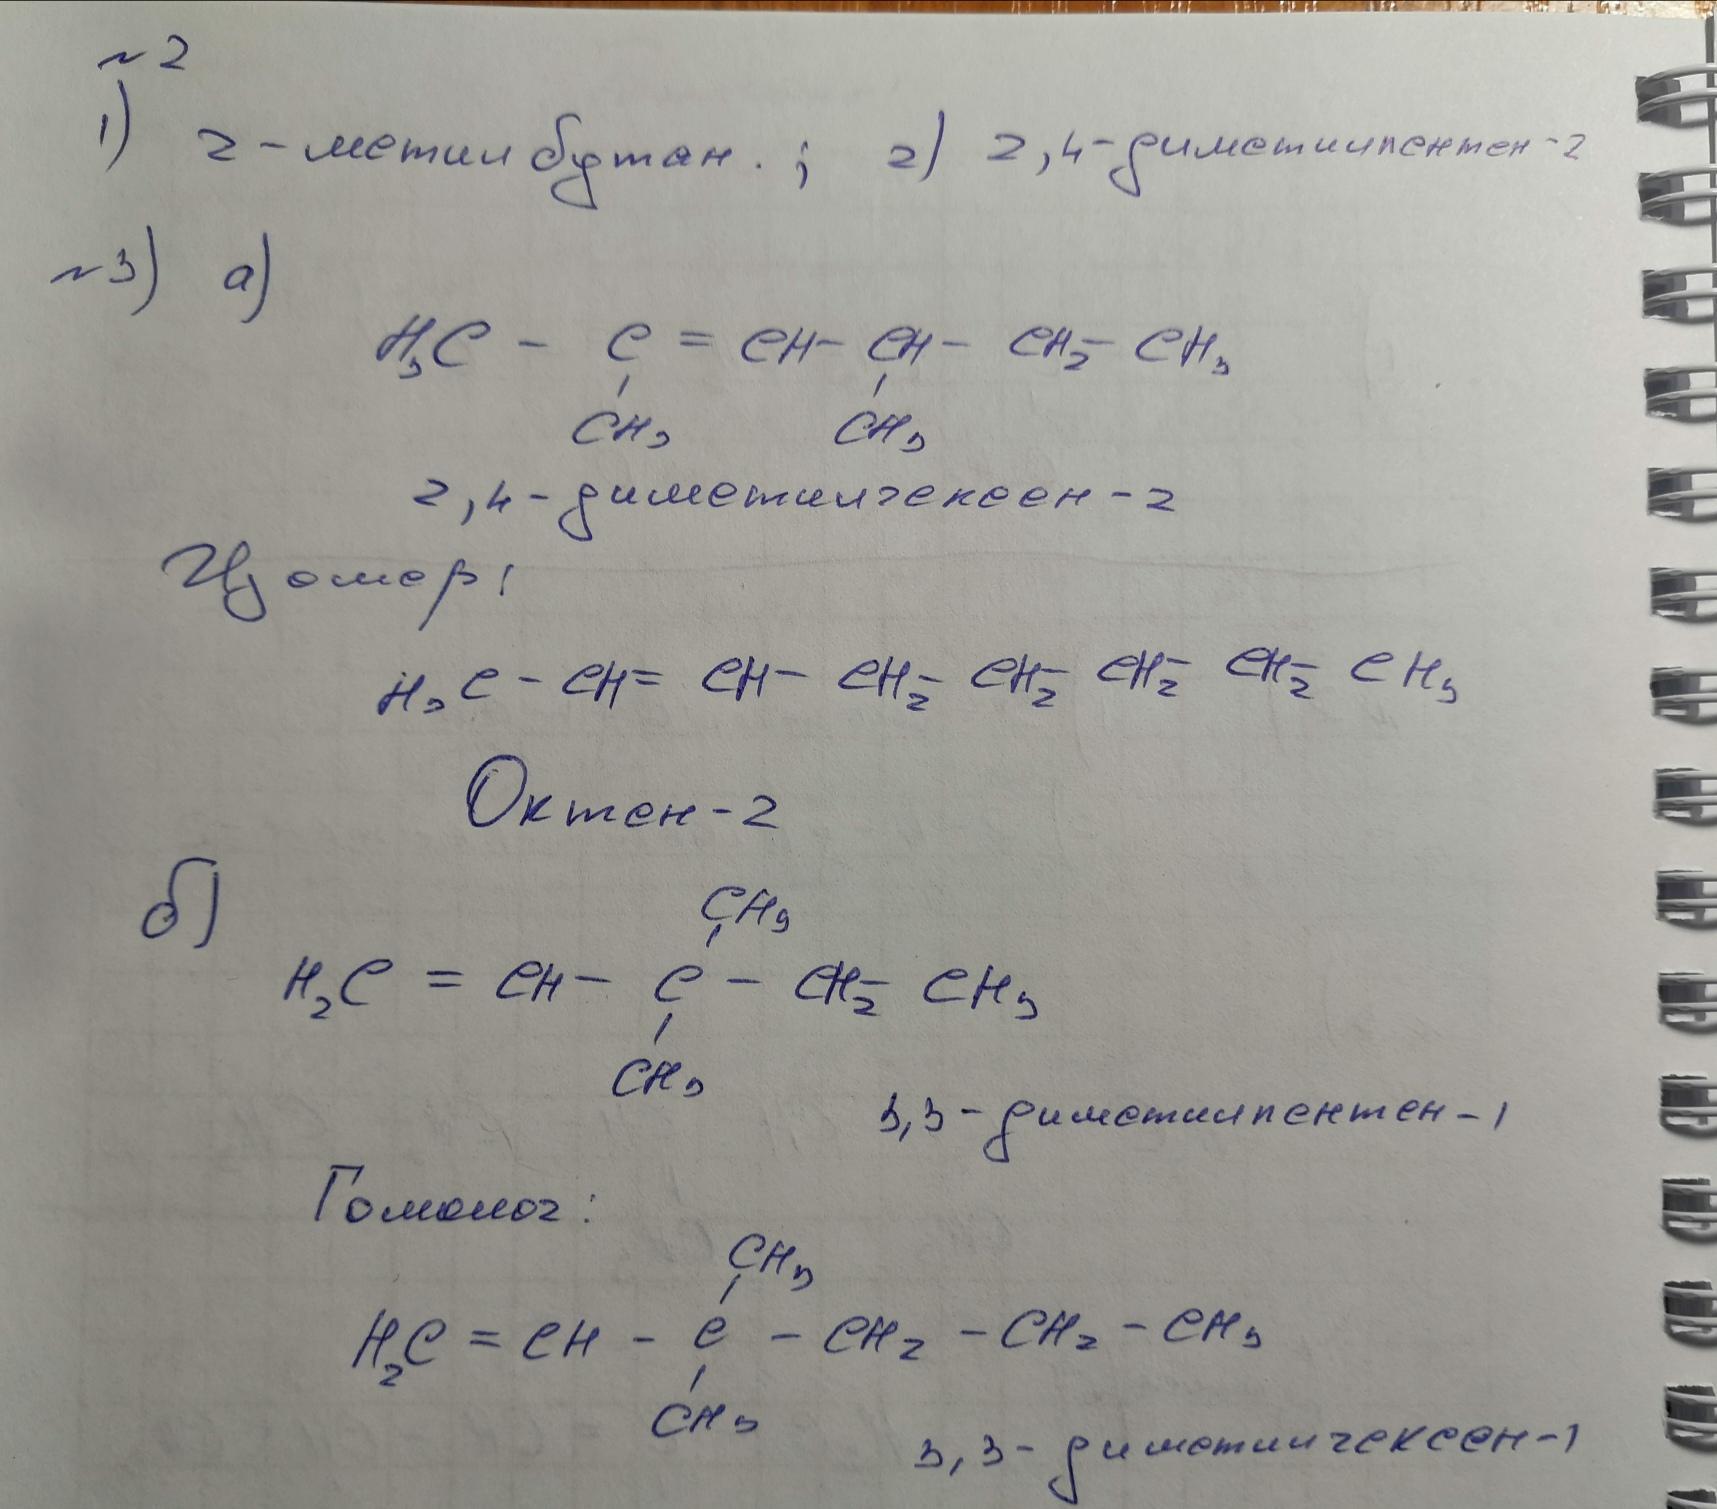 №2
1) 2-метилбутан. ; 2) 2,4-диметилпентен-2
№3) а)
H₃C - C = CH - CH - CH₂ - CH₃
CH₃ CH₃
2,4-диметилгексен-2
Изомер:
H₃C - CH = CH - CH₂ - CH₂ - CH₂ - CH₂ - CH₃
Октен-2
б)
CH₃
H₂C = CH - C - CH₂ - CH₃
CH₃
3,3-диметилпентен-1
Гомолог:
CH₃
H₂C = CH - C - CH₂ - CH₂ - CH₃
CH₃
3,3-диметилгексен-1